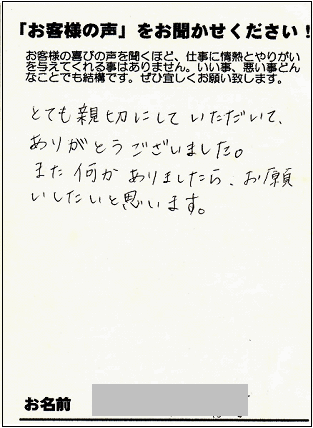 「お客様の声」をお聞かせください！
お客様の喜びの声を聞くほど、仕事に情熱とやりがい
を与えてくれる事はありません。いい事、悪い事どん
なことでも結構です。ぜひ宜しくお願い致します。
とても親切にしていただいて、
ありがとうございました。
また何かありましたら、お願
いしたいと思います。
お名前